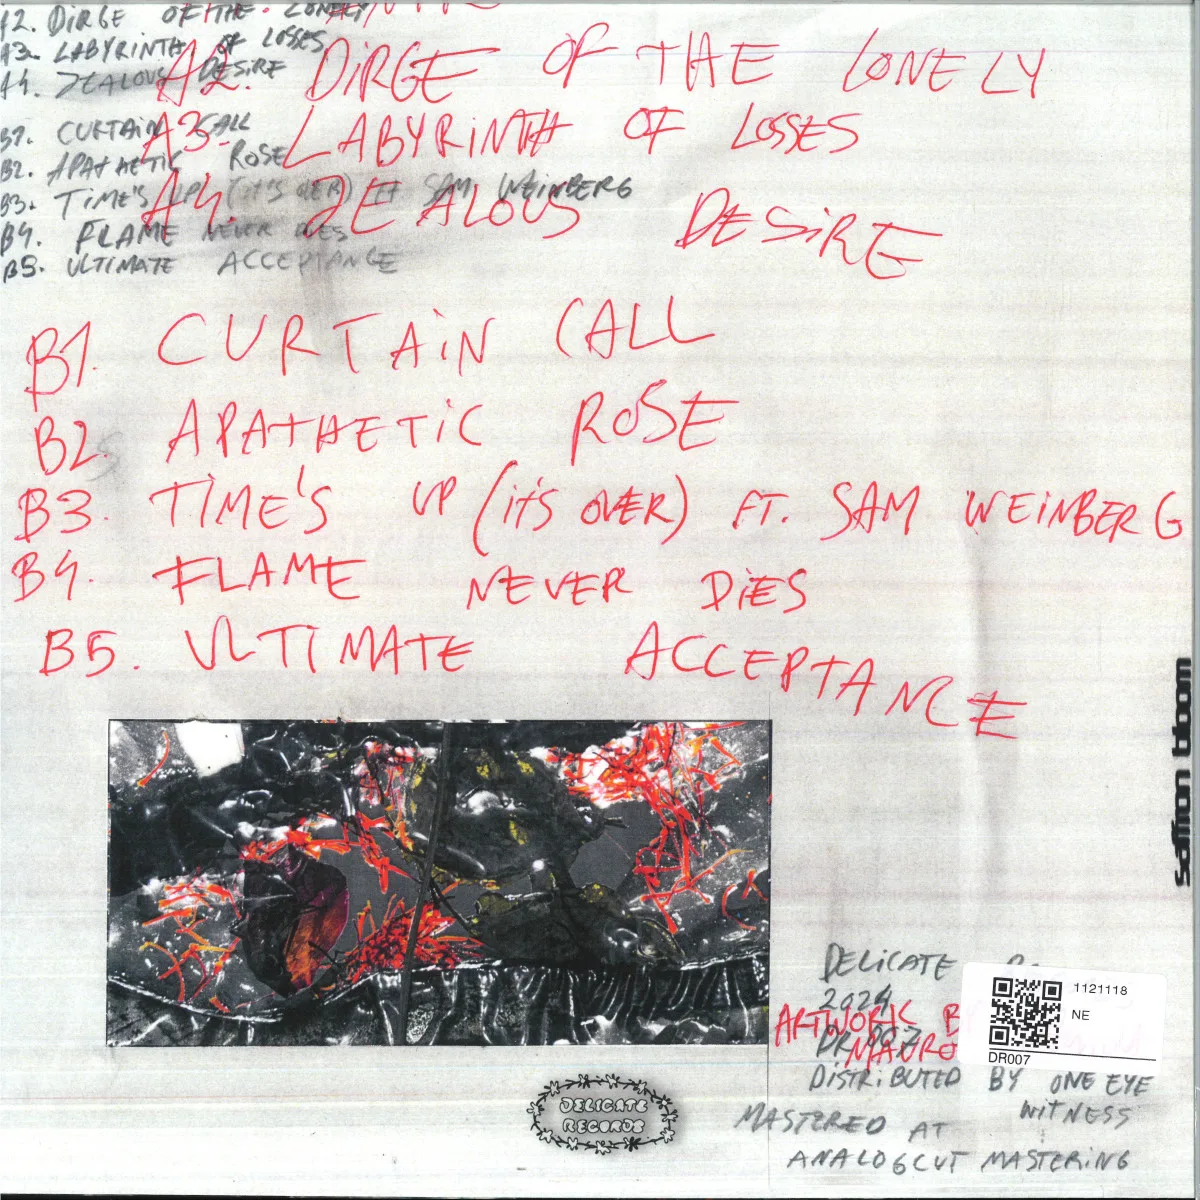 A2. DiRGE OF THE LONELY
A3. LABYRiNTH OF LOSSES
A4. ZEALOUS DESiRE
B1. CURTAiN CALL
B2. APATHETiC ROSE
B3. TiME'S UP (iT'S OVER) FT SAM WEiNBERG
B4. FLAME NEVER DiES
B5. ULTIMATE ACCEPTANCE
A2. DiRGE OF THE LONELY
A3. LABYRiNTH OF LOSSES
A4. ZEALOUS DESiRE
B1. CURTAiN CALL
B2. APATHETiC ROSE
B3. TiME'S UP (iT'S OVER) FT. SAM WEiNBERG
B4. FLAME NEVER DiES
B5. ULTiMATE ACCEPTANCE
saffron bloom
DELiCATE
2024
ARTWORK BY
MAURO
DR007
DiSTRiBUTED BY ONE EYE
WiTNESS
MASTERED AT
ANALOGCUT MASTERiNG
1121118
NE
DR007
DELICATE
RECORDS